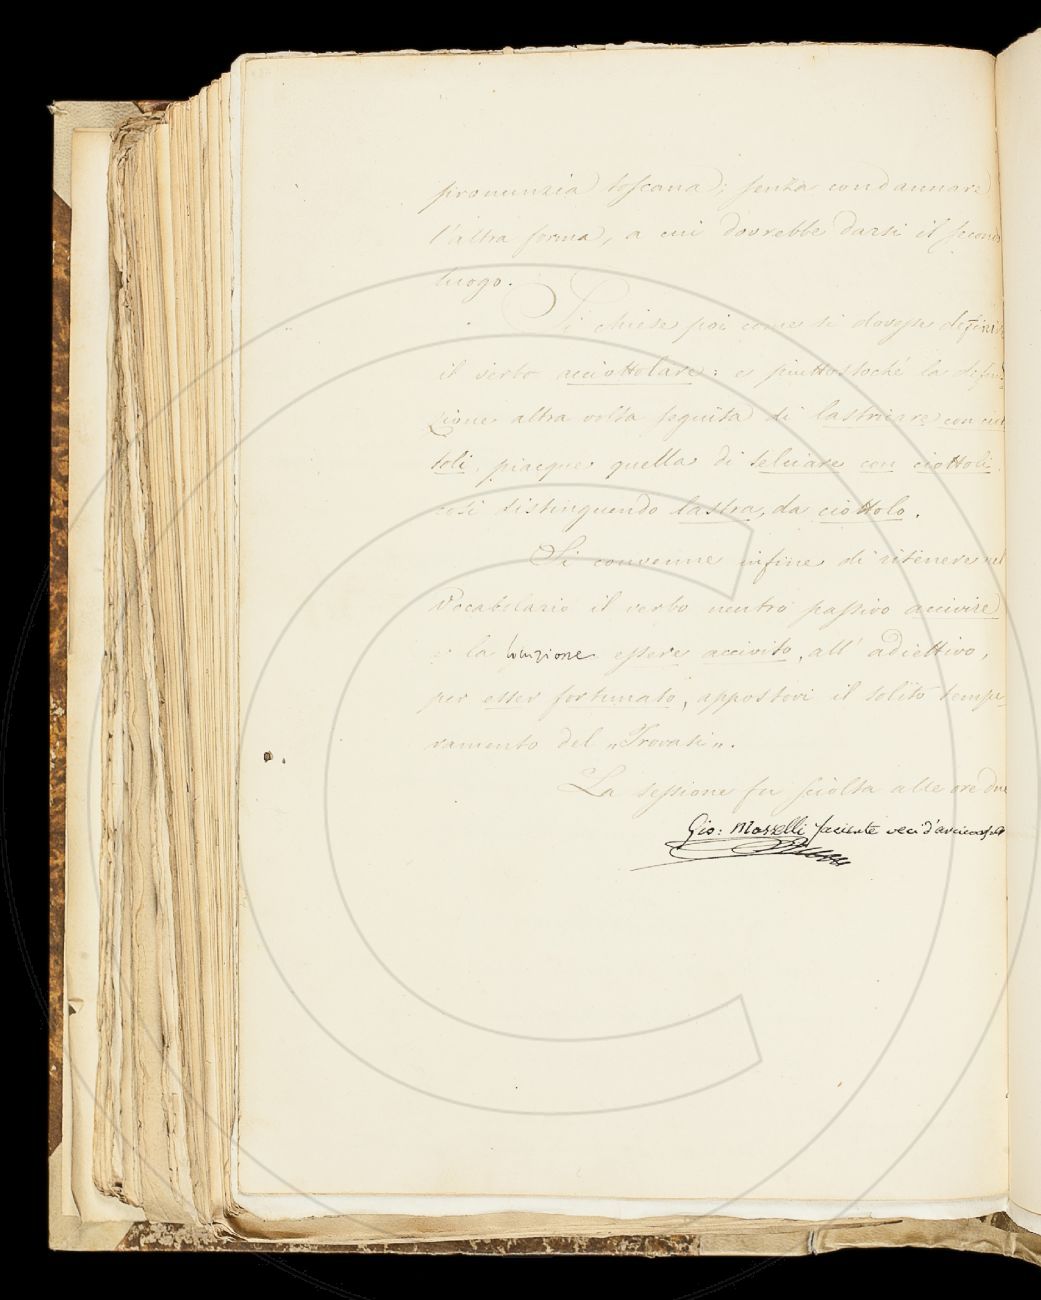 pronunzia toscana; senza condannare
l'altra forma, a cui dovrebbe darsi il secon
luogo.
Si chiese poi come si dovesse definir
il verbo acciottolare: e piuttostoché la defini-
zione altra volta seguita di lastricare con ciot
toli, piacque quella di selciare con ciottoli,
così distinguendo lastra, da ciottolo.
Si convenne infine di ritenere nel
Vocabolario il verbo neutro passivo accivire
e la locuzione essere accivito, all' adiettivo,
per esser fortunato, appostovi il solito tempe-
ramento del „Trovasi„.
La sessione fu sciolta alle ore due
Gio: Masselli facente veci d'arciconsolo